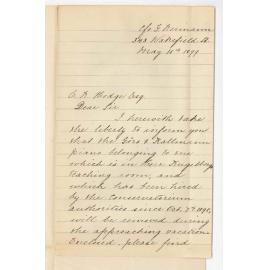 c/o G. Neumann
323 Wakefield St.
May 11th 1899
Esq.
Dear Sir
I herewith take
the liberty to inform you
that the Görs & Kallmann
piano belonging to me
which is in Herr
teaching room, and
which has been hired
by the Conservatorium
authorities since Oct. 7th 1898,
will be removed during
the approaching vacation.
Enclosed, please find